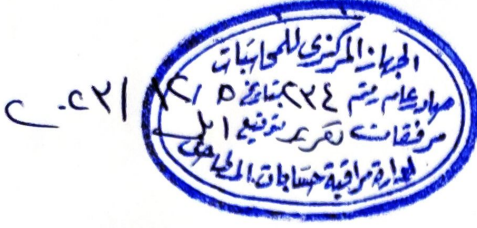 الجهاز المركزى للمحاسبات
صادر عام رقم ٢٣٤ بتاريخ ٥ /١٢/ ٢٠٢٣
مرفقات تقرير توقيع
لإدارة مراقبة حسابات المطاحن